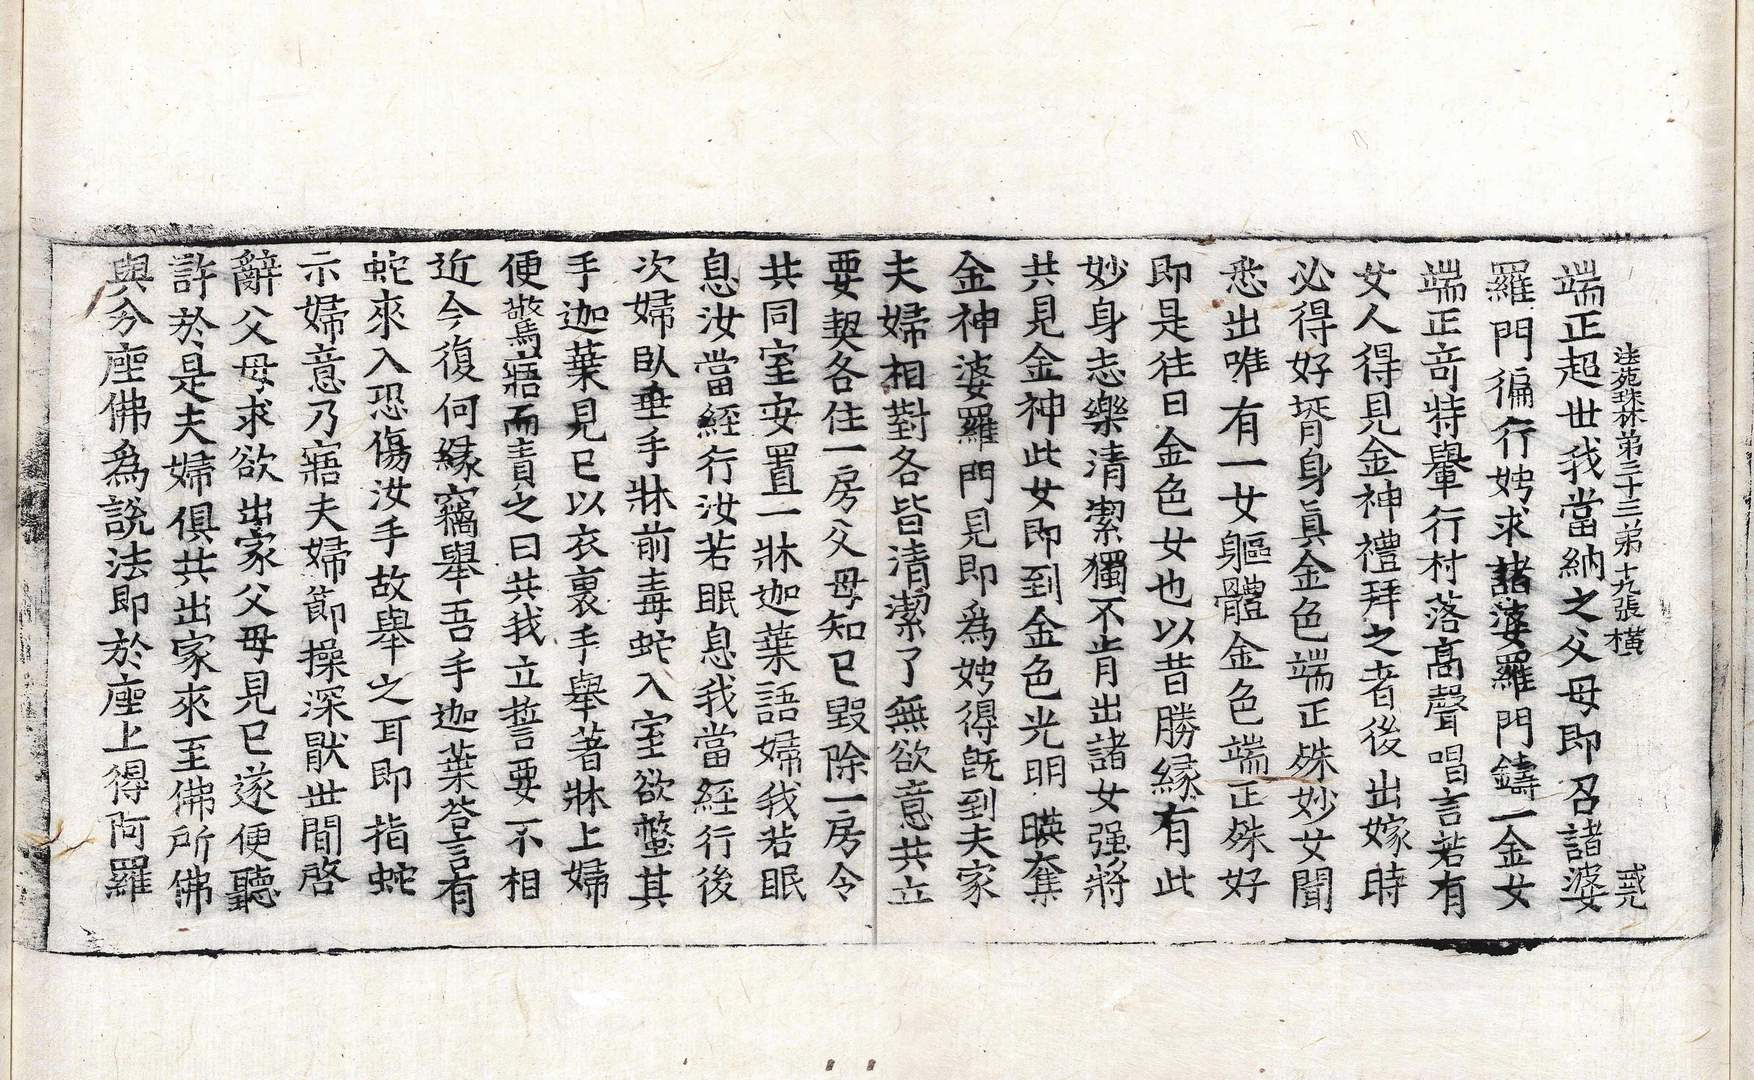 法苑珠林第三十三第十九張橫 戒元
端正超世我當納之父母即召諸婆
羅門徧行娉求諸婆羅門鑄一金女
端正竒特轝行村落髙聲唱言若有
女人得見金神禮拜之者後出嫁時
必得好壻身眞金色端正姝妙女聞
悉出唯有一女軀體金色端正姝好
即是往日金色女也以昔勝縁有此
妙身志樂清潔獨不肯出諸女强將
共見金神此女即到金色光明暎奪
金神婆羅門見即爲娉得旣到夫家
夫婦相對各皆清潔了無欲意共立
要契各住一房父母知已毀除一房令
共同室安置一牀迦葉語婦我若眠
息汝當經行汝若眠息我當經行後
次婦臥垂手牀前毒蛇入室欲螫其
手迦葉見已以衣裹手舉著牀上婦
便驚寤而責之曰共我立誓要不相
近今復何縁竊舉吾手迦葉荅言有
蛇來入恐傷汝手故舉之耳即指蛇
示婦意乃寤夫婦節操深猒世間啓
辭父母求欲出家父母見已遂便聽
許於是夫婦俱共出家來至佛所佛
與分座佛爲說法即於座上得阿羅